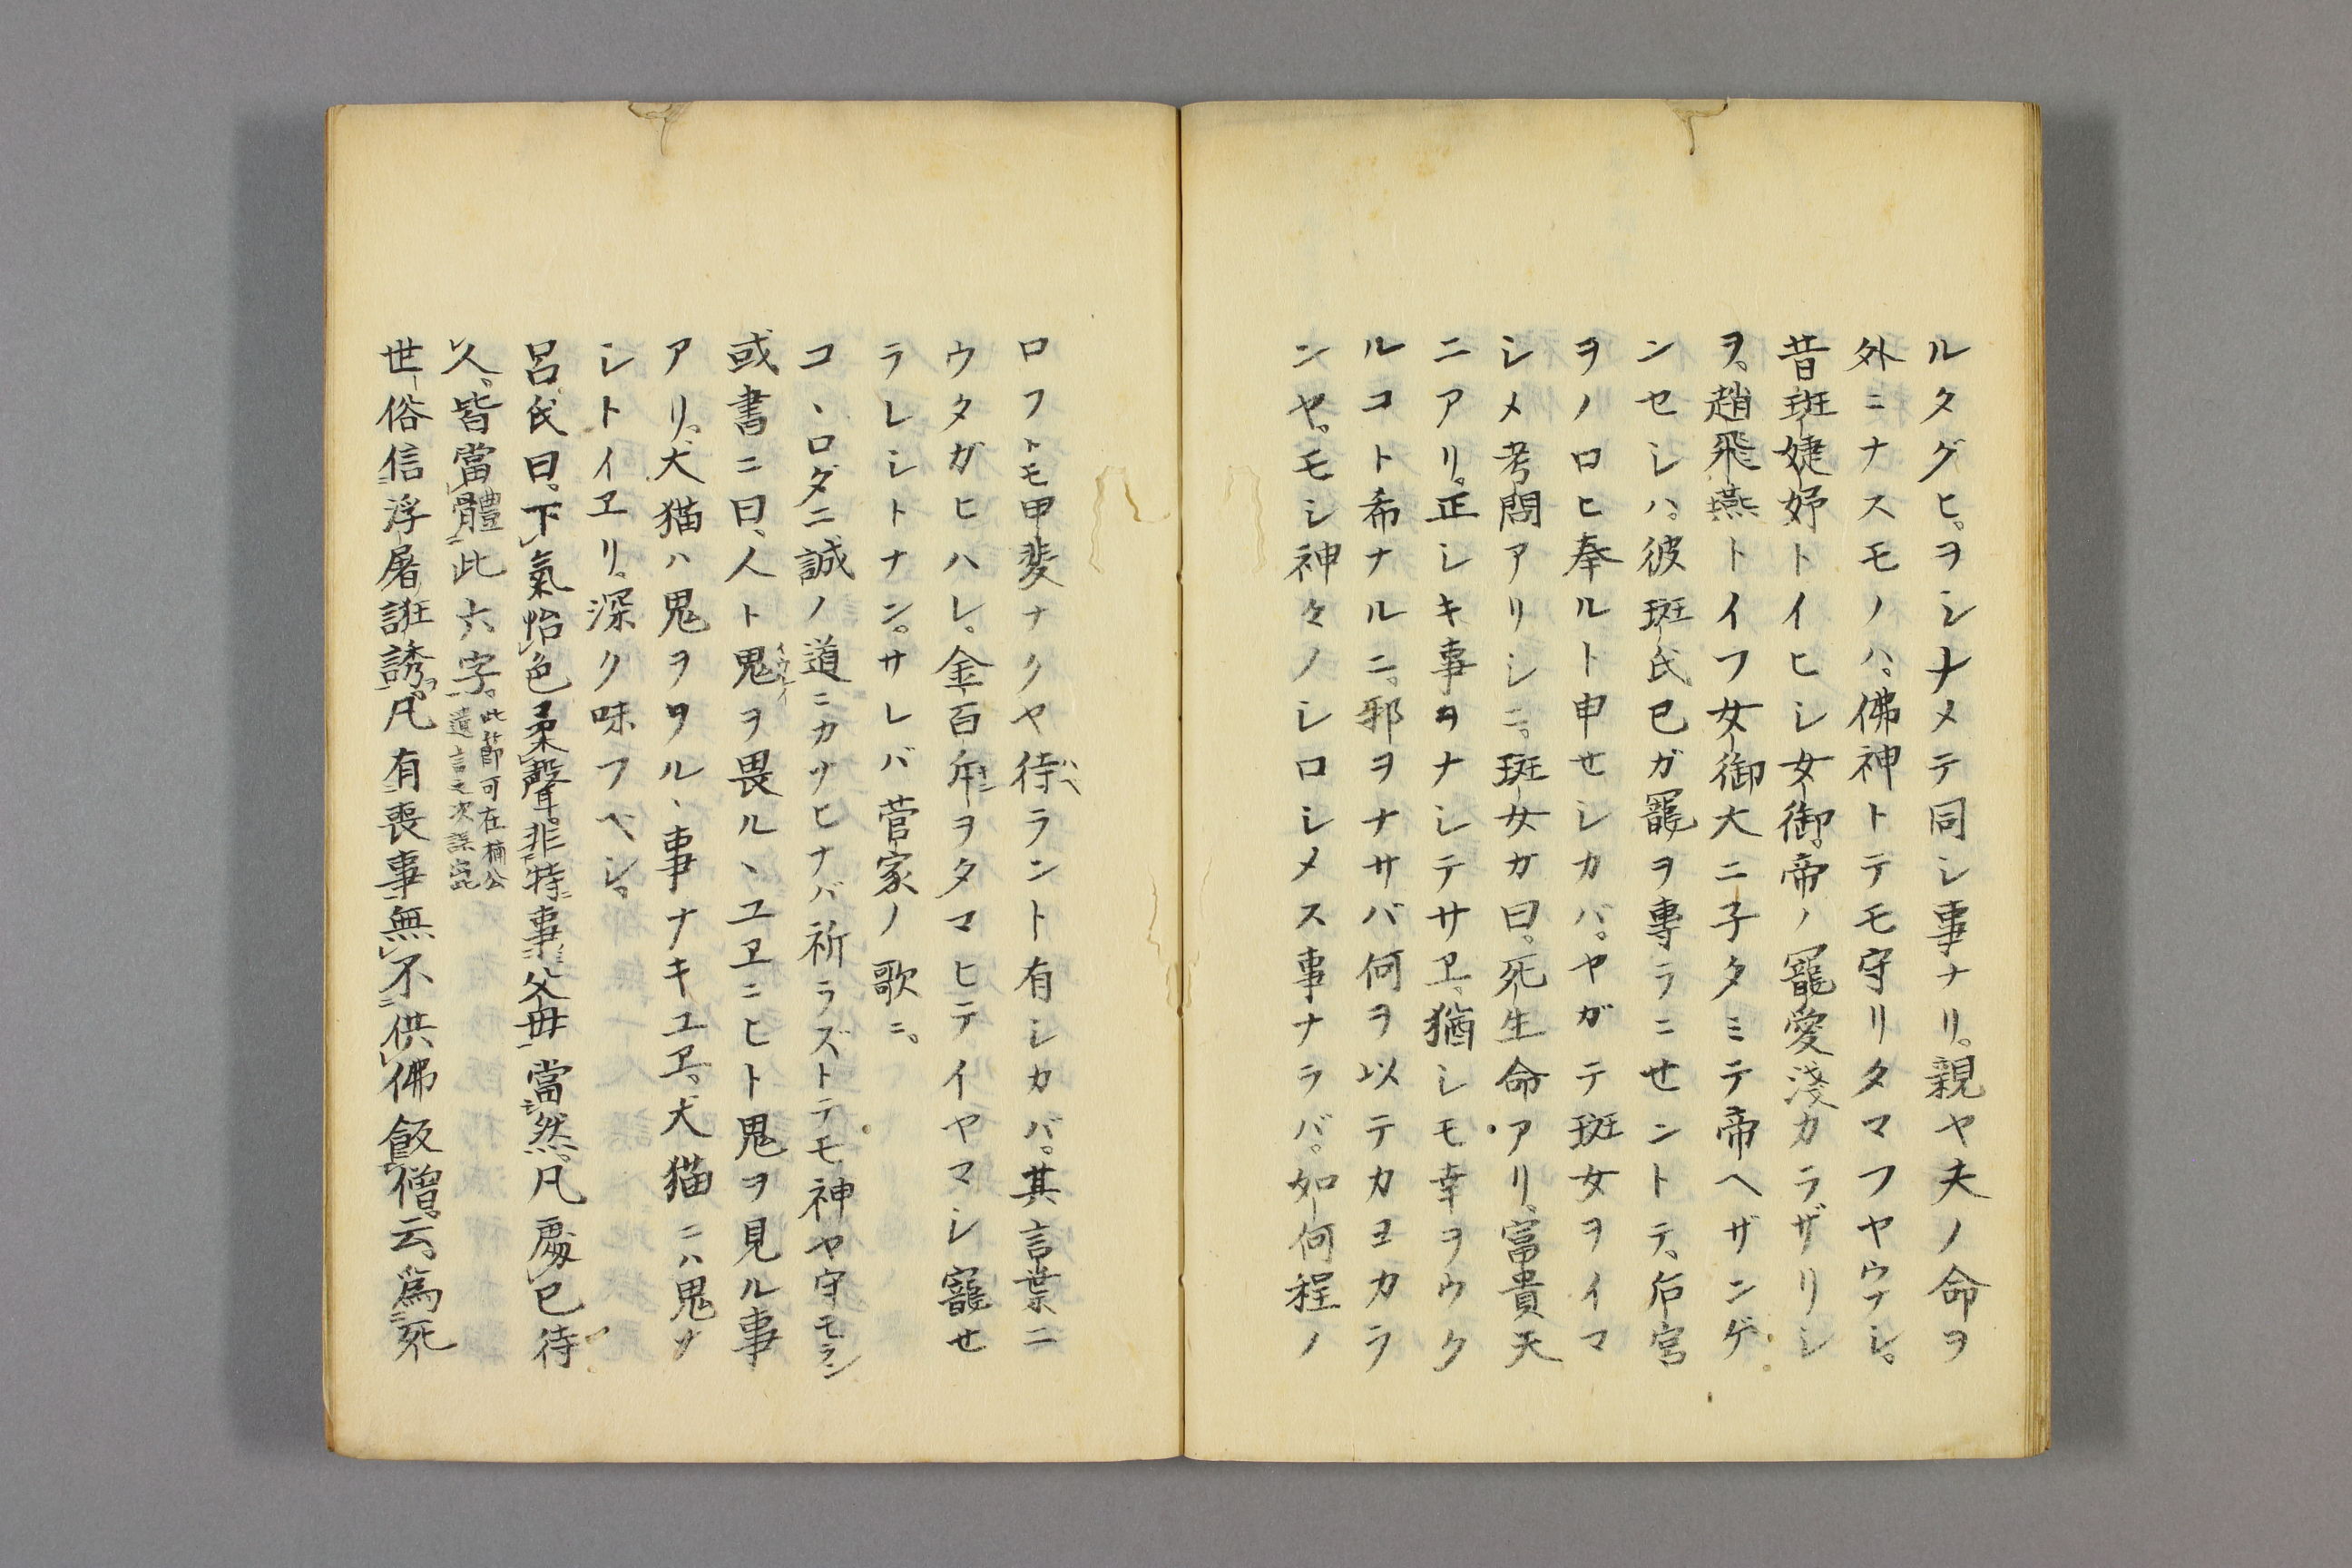 ルタグヒ。ヲシナメテ同シ事ナリ。親ヤ夫ノ命ヲ
外ニナスモノハ。佛神トテモ守リタマフヤウナシ。
昔班婕妤トイヒシ女御。帝ノ寵愛淺カラザリシ
ヲ。趙飛燕トイフ女御大ニ子タミテ帝ヘザンゲ
ンセシハ。彼班氏已ガ寵ヲ專ラニせントテ、后宮
ヲノロヒ奉ルト申せシカバ。ヤガテ班女ヲイマ
シメ考問アリシニ。班女ガ曰。死生命アリ。富貴天
ニアリ。正シキ事ヲナシテサヱ、猶シモ幸ヲウク
ルコト希ナルニ。邪ヲナサバ何ヲ以テカヨカラ
ンヤ。モシ神々ノシロシメス事ナラバ。如何程ノ
ロフトモ甲斐ナクヤ待ラント有シカバ。其言葉ニ
ウタガヒハレ、金百斤ヲタマヒテイヤマシ寵せ
ラレシトナン。サレバ菅家ノ歌ニ。
コヽロダニ誠ノ道ニカナヒナバ祈ラズトテモ神ヤ守モラン
或書ニ曰、人ト鬼ヲ畏ルヽユヱニヒト鬼ヲ見ル事
アリ。犬猫ハ鬼ヲヲルヽ事ナキユヱ、犬猫ニハ鬼ナ
シトイヱリ。深ク味フベシ。
呂氏曰。下氣怡色柔聲。非特事父母當然。凡處已待
人、皆當體此六字。此節可在楠公遺言之次誤寫
世俗信浮屠誑誘。凡有喪事無不供佛飯僧。云。爲死